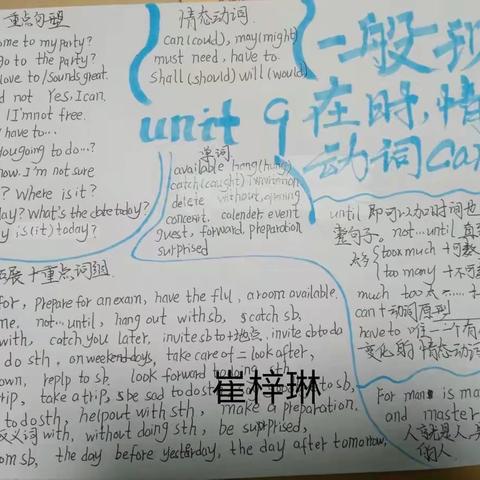 重点句型
come to my party?
go to the party?
love to/Sounds great.
not Yes, I can.
I I'm not free.
have to...
you going to do...?
now. I'm not sure
? Where is it?
day? What's the date today?
is (it) today?
情态动词.
can (could), may (might)
must need, have to
shall (should) will (would)
unit 9
一般现
在时,情
动词can
单词
available hang (hung)
catch (caught) invitation
delete without, opening
concert. calender event
guest, forward, preparation
surprised
until 即可以加时间也
整句子。not...until 直到
太多 {toox much +可数
too many +不可数
much too 太......+
can+动词原型
have to 唯一一个有
变化的 情态动词
展十重点词组
for, prepare for an exam, have the flu, a room available.
me. not...until, hang out with sb, catch sb.
with, catch you later. invite sb to+地点. invite sb to do
do sth, on weekend days, take care of = look after,
own, replp to sb. look forward to doing sth
rip, take a trip, be sad to do sth to sb,
to do sth, help out with sth, make a preparation.
反义词 with, without doing sth, be surprised,
from sb, the day before yesterday, the day after tomorrow,
崔梓琳
For man is ma
and master
人就是人,是
的人.